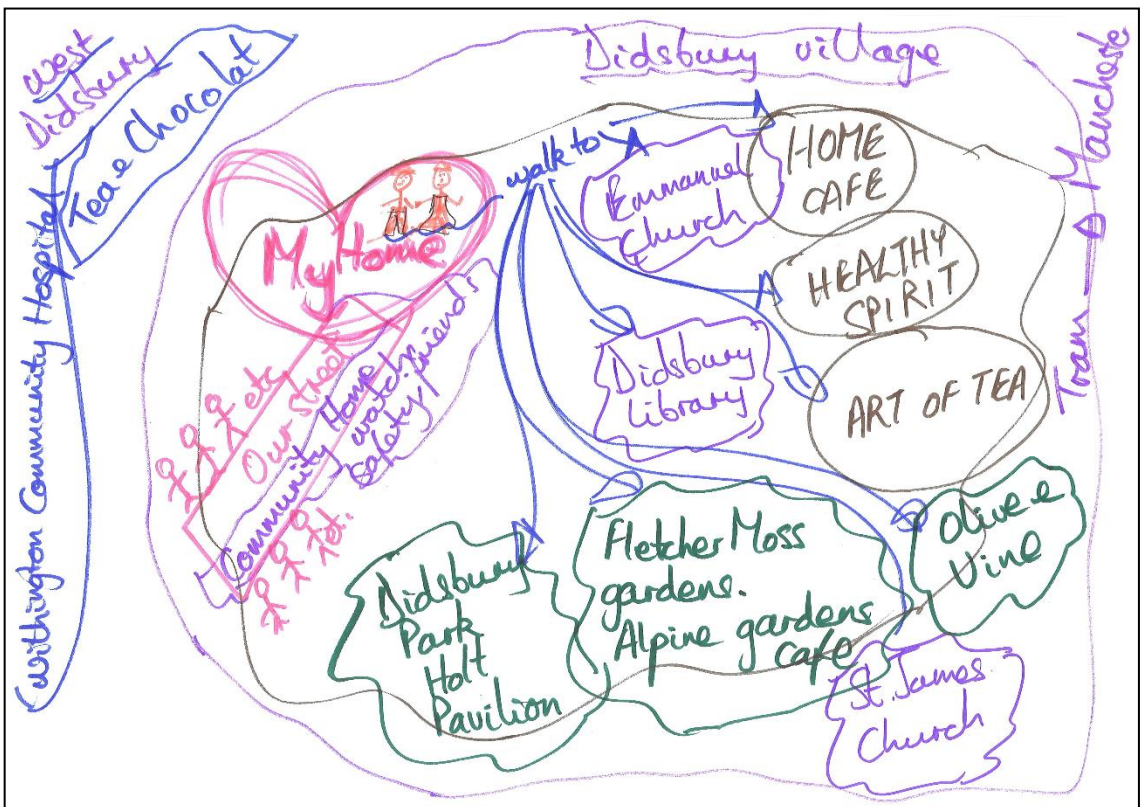 West
Didsbury
Tea e Chocolat
Withington Community Hospital
Didsbury village
Tram → Manchester
My Home
walk to
Emmanuel
Church
HOME
CAFE
HEALTHY
SPIRIT
Didsbury
Library
ART OF TEA
etc
Our street
Community Home
watch.
safety/friends
et..
Didsbury
Park
Holt
Pavilion
Fletcher Moss
gardens.
Alpine gardens
cafe
Olive e
Vine
St. James
Church